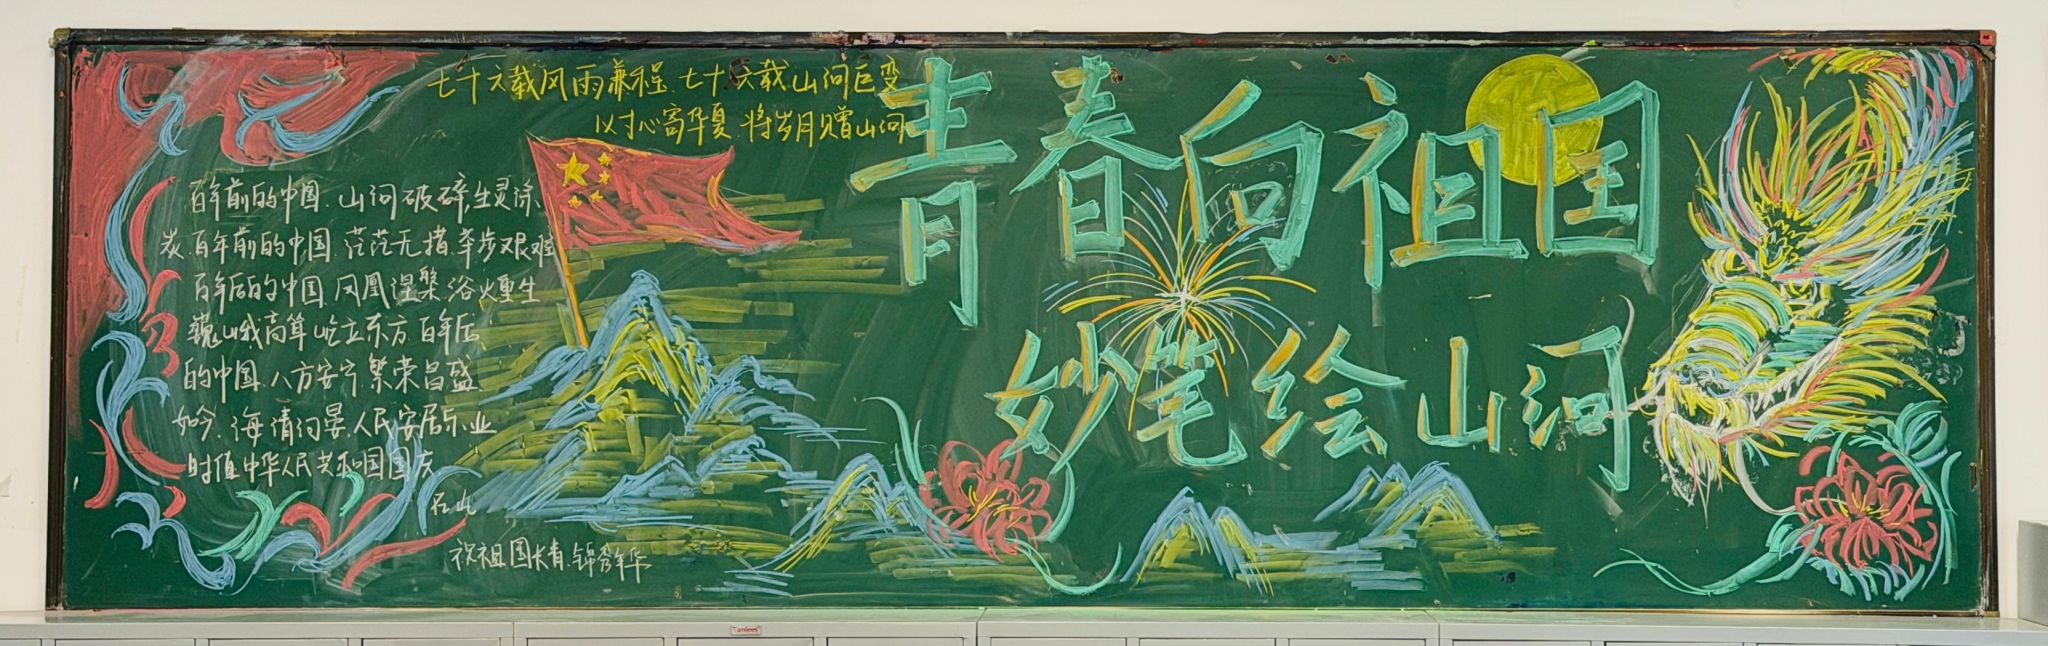 七十六载风雨兼程.七十六载山河巨变
以寸心寄华夏 将岁月赠山河
青春向祖国
妙笔绘山河
百年前的中国.山河破碎,生灵涂
炭.百年前的中国.茫茫无措.举步艰难
百年后的中国.凤凰涅槃.浴火重生
巍峨高耸 屹立东方.百年后
的中国.八方安宁.繁荣昌盛
如今.海清河晏.人民安居乐业
时值中华人民共和国国庆
在此
祝祖国长青.锦秀年华
Tanlees